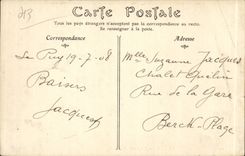 Carte Postale
Tous les pays étrangers n'acceptent pas la correspondance au recto.
Se renseigner à la poste.
Correspondance
Adresse
Le Puy 19-7-08
Baisers
Jacques
Mlle Suzanne Jacques
Chalet
Rue de la Gare
Berck-Plage